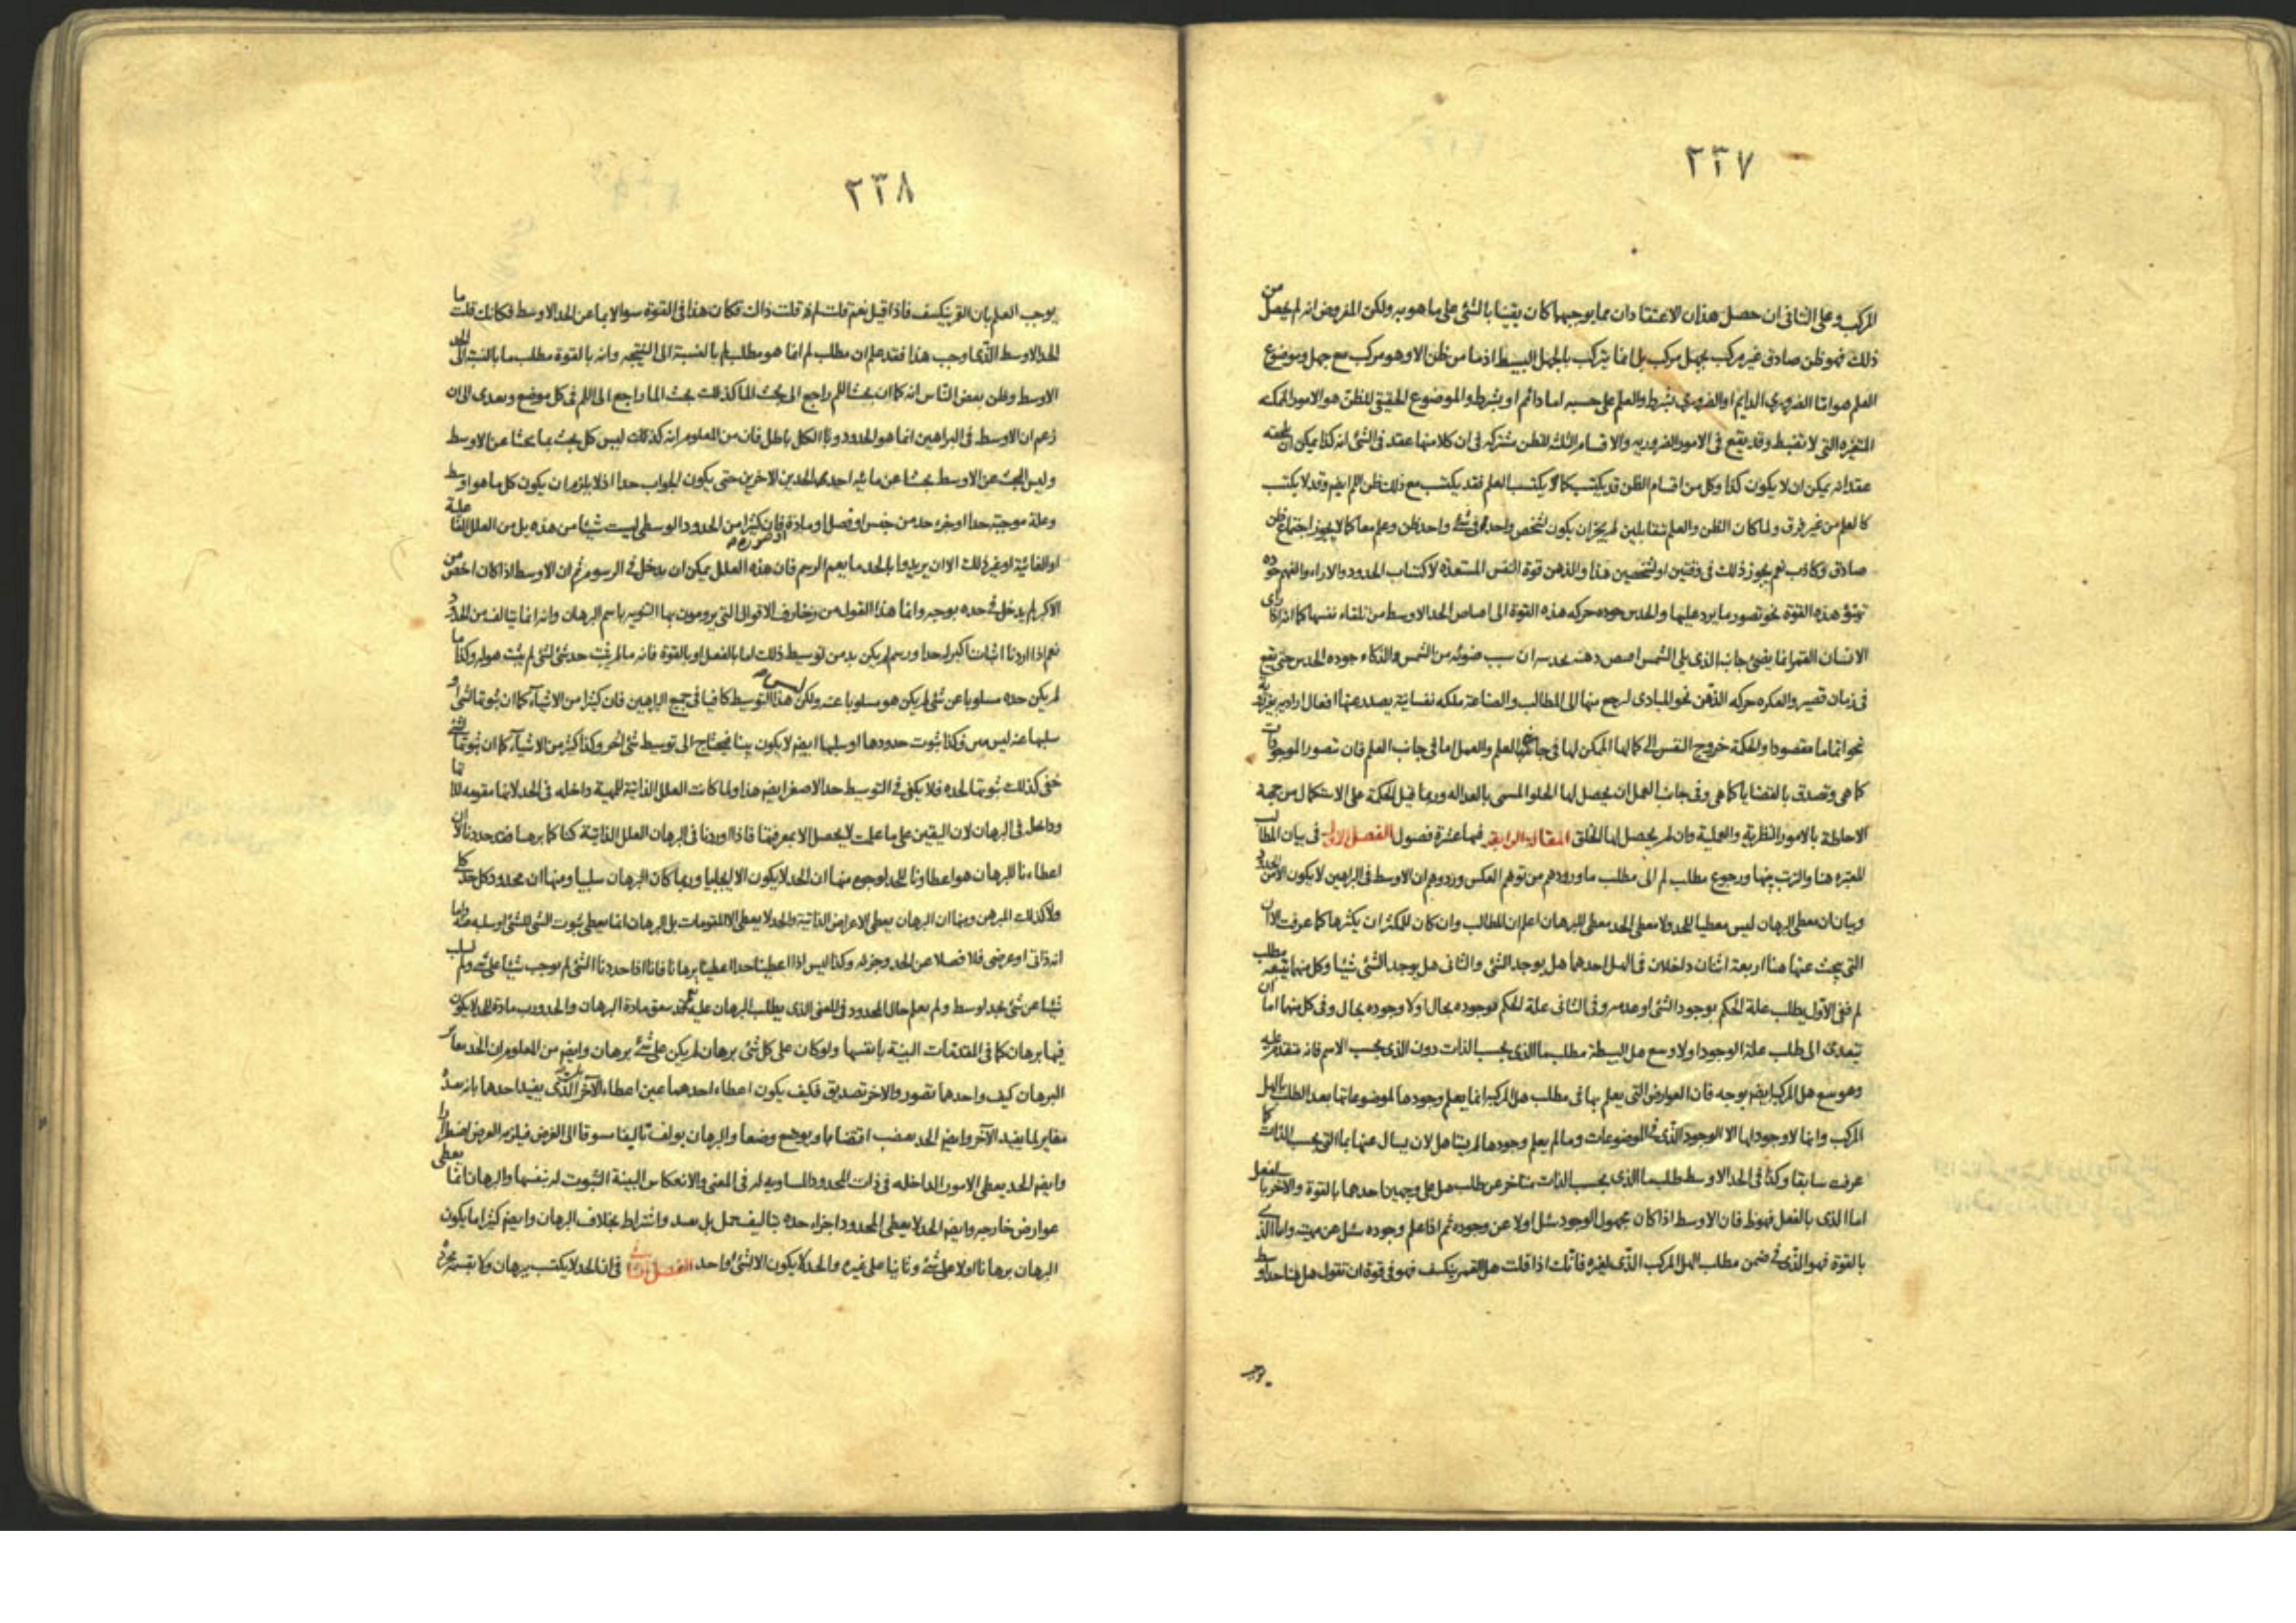 ٢٣٧
المركب وعلى الثانى ان حصل هذان الاعتقادان مما يوجبهما كان يقينا بالشئ على ما هو به ولكن المفروض انه لم يحصل من
ذلك فهو ظن صادق غير مركب بجهل مركب بل انما يتركب بالجهل البسيط اذ ما من ظن الا وهو مركب مع جهل وموضوع
العلم هو اما الضرورى الدايم او الضرورى بشرط والعلم على حسبه اما دائم او بشرط والموضوع الحقيقى للظن هو الامور الممكنه
المتغيره التى لا تضبط وقد يقع فى الامور الضروريه والاقسام الثلثه للظن مشتركه فى ان كلا منها عقد فى الشئ انه كذا يمكن ان
عقد انه يمكن ان لا يكون كذا وكل من اقسام الظن قد يكتسب كما لا يكتسب العلم فقد يكتسب مع ذلك ظن اللم ايضا وقد لا يكتسب
كالعلم من غير فرق ولما كان الظن والعلم متقابلين لم يجز ان يكون لشخص واحد فى شئ واحد ظن وعلم معا كما لا يجوز اجتماع ظن
صادق وكاذب نعم يجوز ذلك فى وقتين او لشخصين هذا والذهن قوة النفس المستعدة لاكتساب الحدود والاراء والفهم جوده
تهيؤ هذه القوة نحو تصور ما يرد عليها والحدس جوده حركه هذه القوة الى اصاص الحد الاوسط من تلقاء نفسها كما اذا راى
الانسان القمر انما يضئ جانبه الذى يلى الشمس ذهنه بحدسه ان سبب ضوئه من الشمس والذكاء جوده الحدس حتى يقع
فى زمان قصير والفكره حركه الذهن نحو المبادى لرجع منها الى المطالب والصناعة ملكه نفسانية يصدر عنها افعال اراديه
نحوا تماما مقصودا والحكمة خروج النفس الى كمالها الممكن لها فى جانبى العلم والعمل اما فى جانب العلم فان تصور الموجودات
كما هى وتصدق بالقضايا كما هى وفى جانب العمل ان يحصل لها الخلق المسمى بالعداله وربما قيل الحكمة على الاستكمال من جهة
الاحاطة بالامور النظرية والعملية وان لم يحصل لها الخلق المقالة الرابعه فيها عشرة فصول الفصل الاول فى بيان المطالب
المعتبره هنا والترتب بينها ورجوع مطلب لم الى مطلب ما من توهم العكس ورد وهم ان الاوسط فى البراهين لا يكون الا من الحدود
وبيان ان معطى البرهان ليس معطيا للحد ولا معطى الحد معطى للبرهان اعلم ان المطالب وان كان للمكثر ان يكثرها كما عرفت الا ان
التى يبحث عنها هنا اربعة اثنان داخلان فى الهل احدهما هل يوجد الشئ والثانى هل يوجد الشئ شيئا وكل منهما يتبعه مطلب
لم ففى الاول يطلب علة الحكم بوجود الشئ او عدمه وفى الثانى علة الحكم بوجوده بحال او لا وجوده بحال وفى كل منهما اما ان
يتعدى الى طلب علة الوجود او لا ومع هل البسيطة مطلب ما الذى بحسب الذات دون الذى بحسب الاسم فانه متقدم عليه
وهو مع هل المركب ايضا بوجه فان العوارض التى يعلم بها فى مطلب هل المركب انما يعلم وجودها لموضوعاتها بعد الطلب بالهل
المركب وانها لا وجود لها الا الوجود الذى فى الموضوعات وما لم يعلم وجودها لم يتاهل لان يسال عنها بما التى بحسب الذات كما
عرفت سابقا وكذا فى الحد الاوسط طلب ما الذى بحسب الذات متاخر عن طلب هل على وجهين احدهما بالقوة والاخر بالفعل
اما الذى بالفعل فهو ظ فان الاوسط اذا كان مجهول الوجود سئل اولا عن وجوده ثم اذا علم وجوده سئل عن مهيته واما الذى
بالقوة فهو الذى فى ضمن مطلب الهل المركب الذى لغيره فانك اذا قلت هل القمر ينكسف فهو فى قوة ان تقول هل هنا حد اوسط
يوجب
٢٣٨
يوجب العلم بان القمر ينكسف فاذا قيل نعم قلت لم قلت ذاك فكان هذا فى القوة سوالا بما عن الحد الاوسط فكانك قلت ما
الحد الاوسط الذى اوجب هذا فقد علم ان مطلب لم انما هو مطلب لم بالنسبة الى النتيجه وانه بالقوة مطلب ما بالنسبة الى الحد
الاوسط وظن بعض الناس انه كما ان بحث اللم راجع الى بحث الما كذلك بحث الما راجع الى اللم فى كل موضع وتعدى الى ان
زعم ان الاوسط فى البراهين انما هو الحدود وبالكل باطل فان من المعلوم انه كذلك ليس كل بحث بما بحثا عن الاوسط
وليس البحث عن الاوسط بحثا عن مائيه احد الحدين الاخرين حتى يكون الجواب حدا اذ لا يلزم ان يكون كل ما هو اوسط
وعلة موجبة حدا او جزء حد من جنس او فصل او مادة او صورة فان كثيرا من الحدود الوسطى ليست شيئا من هذه بل من العلل الفاعلة
او الغائية او غير ذلك الا ان يريدوا بالحد ما يعم الرسم فان هذه العلل يمكن ان يدخل فى الرسوم ثم ان الاوسط اذا كان اخص من
الاكبر لم يدخل فى حده بوجه وانما هذا القول من زخارف الاقوال التى يرومون بها التنويه باسم البرهان وانه انما يتالف من الحدود
نعم اذا اردنا اثبات اكبر له حد او رسم لم يكن بد من توسيط ذلك اما بالفعل او بالقوة فانه ما لم يثبت حد شئ لشئ لم يثبت هو له وكذا ما
لم يكن حده مسلوبا عن شئ لم يكن هو مسلوبا عنه ولكن ليس هذا التوسيط كافيا فى جميع البراهين فان كثيرا من الاشياء كما ان ثبوتها لشئ او
سلبها عنه ليس بين وكذا ثبوت حدودها او سلبها ايضا لا يكون بينا فيحتاج الى توسيط شئ اخر وكذا كثير من الاشياء كما ان ثبوتها لشئ
خفى كذلك ثبوتها لحده فلا يكفى فى التوسيط حد الاصغر ايضا هذا ولما كانت العلل الذاتية للمهية داخله فى الحد لانها مقومه لها
وداخله فى البرهان لان اليقين على ما علمت لا يحصل الا بمعرفتها فاذا اوردنا فى البرهان العلل الذاتية كنا كما برهنا فقد حددنا الا ان
اعطاءنا للبرهان هو اعطاونا للحد لوجوه منها ان الحد لا يكون الا ايجابيا وربما كان البرهان سلبيا ومنها ان محدود كل حد كلى
ولا كذلك المبرهن ومنها ان البرهان يعطى الاعراض الذاتية والحد لا يعطى الا المقومات بل البرهان انما يعطى ثبوت الشئ للشئ او سلبه عنه واما
انه ذاتى او عرضى فلا فضلا عن الحد وجزئه وكذا ليس اذا اعطينا حدا اعطينا برهانا فانا اذا حددنا الشئ لم يوجب شيئا على شئ ولم يسلب
شيئا عن شئ بحد اوسط ولم يعلم حال المحدود فى المعنى الذى يطلب البرهان عليه مادة البرهان والحدود مادة الحد لا يكون
فيها برهان كما فى المقدمات البينة بانفسها ولو كان على كل شئ برهان لم يكن على شئ برهان وايضا من المعلوم ان الحد مغاير
البرهان كيف واحدها تصور والاخر تصديق فكيف يكون اعطاء احدهما عين اعطاء الاخر الذى يفيد احدها بانفراده
مغاير لما يفيد الاخر وايضا الحد اقتضابا ويوضع وضعا والبرهان يولف تاليفا سوقا الى الغرض فيلزمه الغرض اضطرارا
وايضا الحد يعطى الامور الداخله فى ذات المحدود المساويه له فى المعنى والانعكاس البينة الثبوت له بنفسها والبرهان انما يعطى
عوارض خارجه وايضا الحد لا يعطى المحدود اجزاء حده بتاليف حمل بل واشتراط بخلاف البرهان وايضا كثيرا ما يكون
البرهان برهانا اولا على شئ وثانيا على غيره والحد لا يكون الا لشئ واحد الفصل الثانى فى ان الحد لا يكتسب ببرهان ولا بقسمة